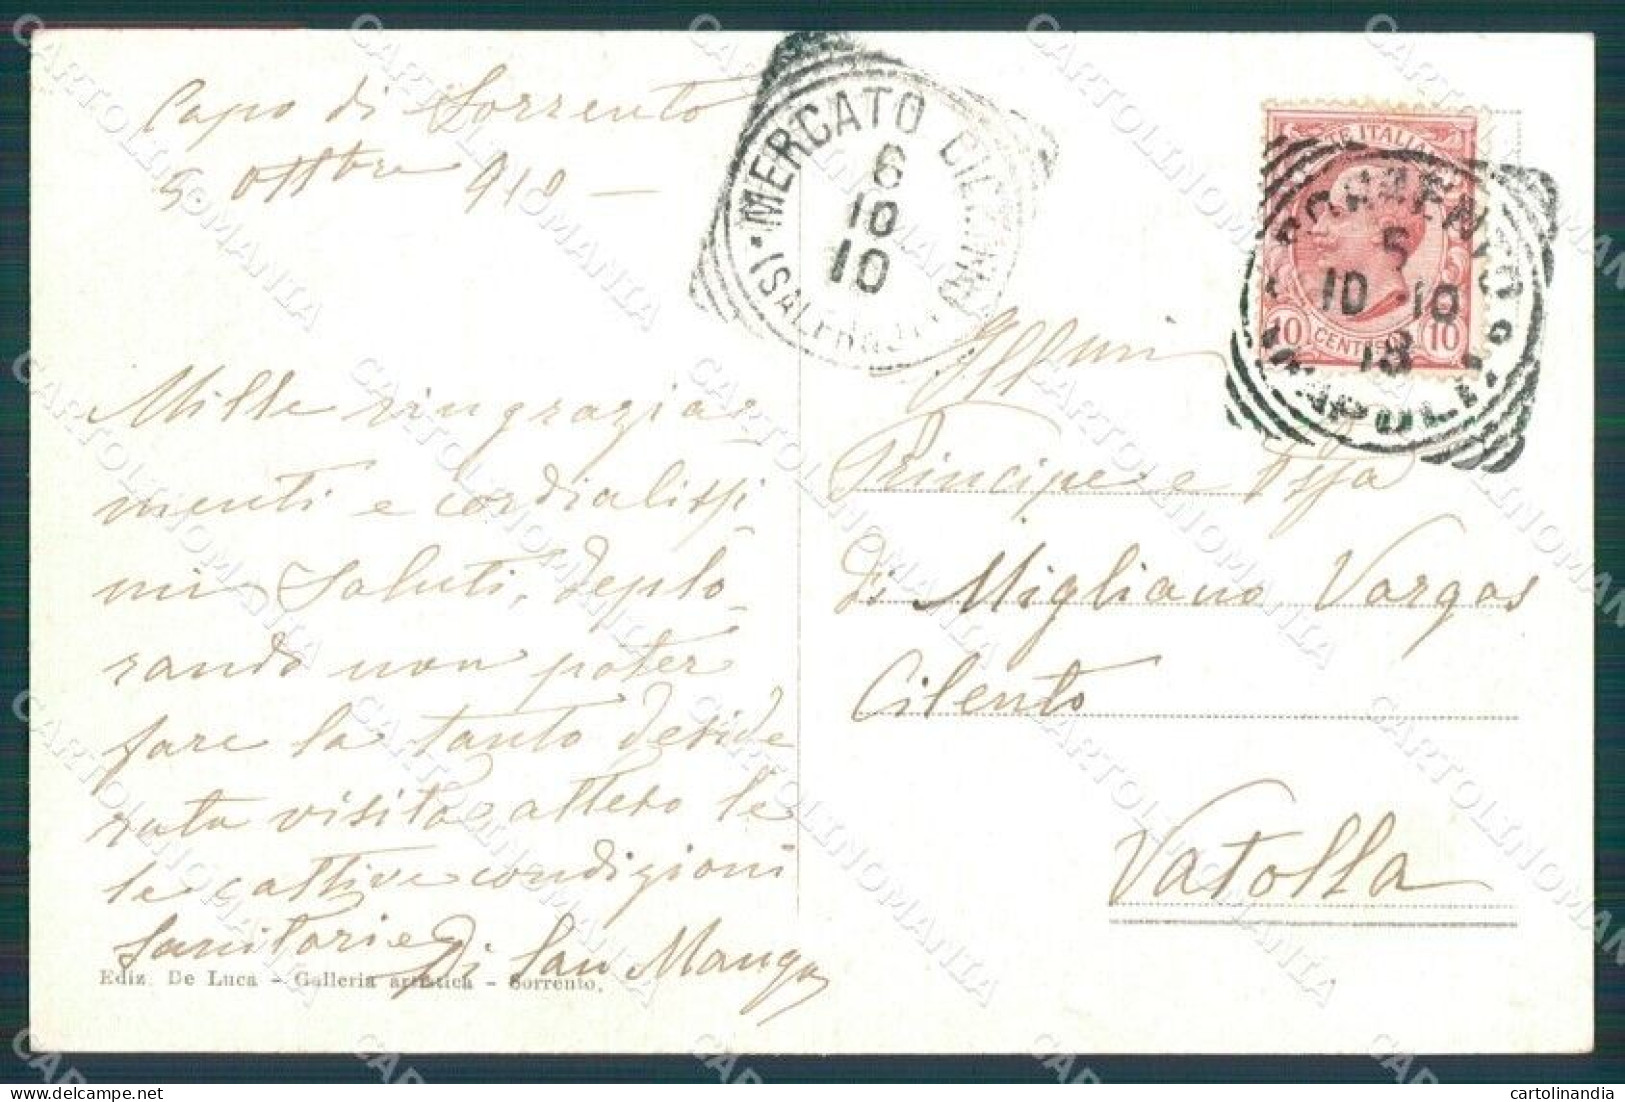 Capo di Sorrento
5 ottbre 910 –
Mille ringrazia-
menti e cordialissi
mi saluti, deplo-
rando non poter
fare la tanto deside
rata visita atteso le
le cattive condizioni
sanitarie
Di San Mango
Ediz. De Luca - Galleria artistica - Sorrento.
MERCATO CILENTO
(SALERNO)
6
10
10
POSTE ITALIANE
10 CENTESIMI 10
SORRENTO
5
10 10
18
(NAPOLI)
Principe e
di Migliano Vargas
Cilento
Vatolla
CARTOLINOMANIA
cartolinandia